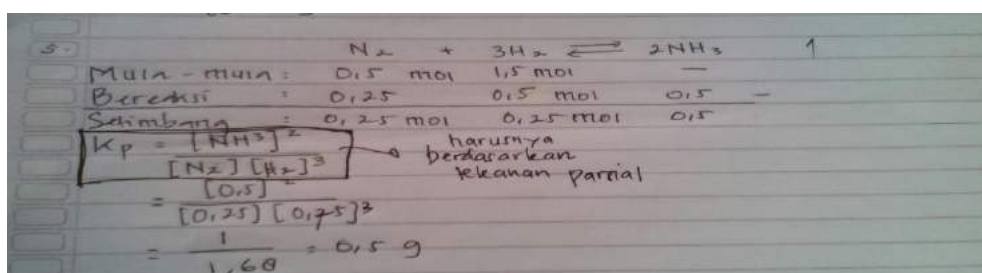 5. N₂ + 3H₂ ⇌ 2NH₃ 1
Mula-mula : 0,5 mol 1,5 mol —
Bereaksi : 0,25 0,5 mol 0,5 —
Setimbang : 0,25 mol 0,25 mol 0,5
Kp = [NH³]² / [N₂] [H₂]³ → harusnya berdasarkan tekanan parsial
= [0,5]² / [0,25] [0,75]³
= 1 / 1,68 = 0,59